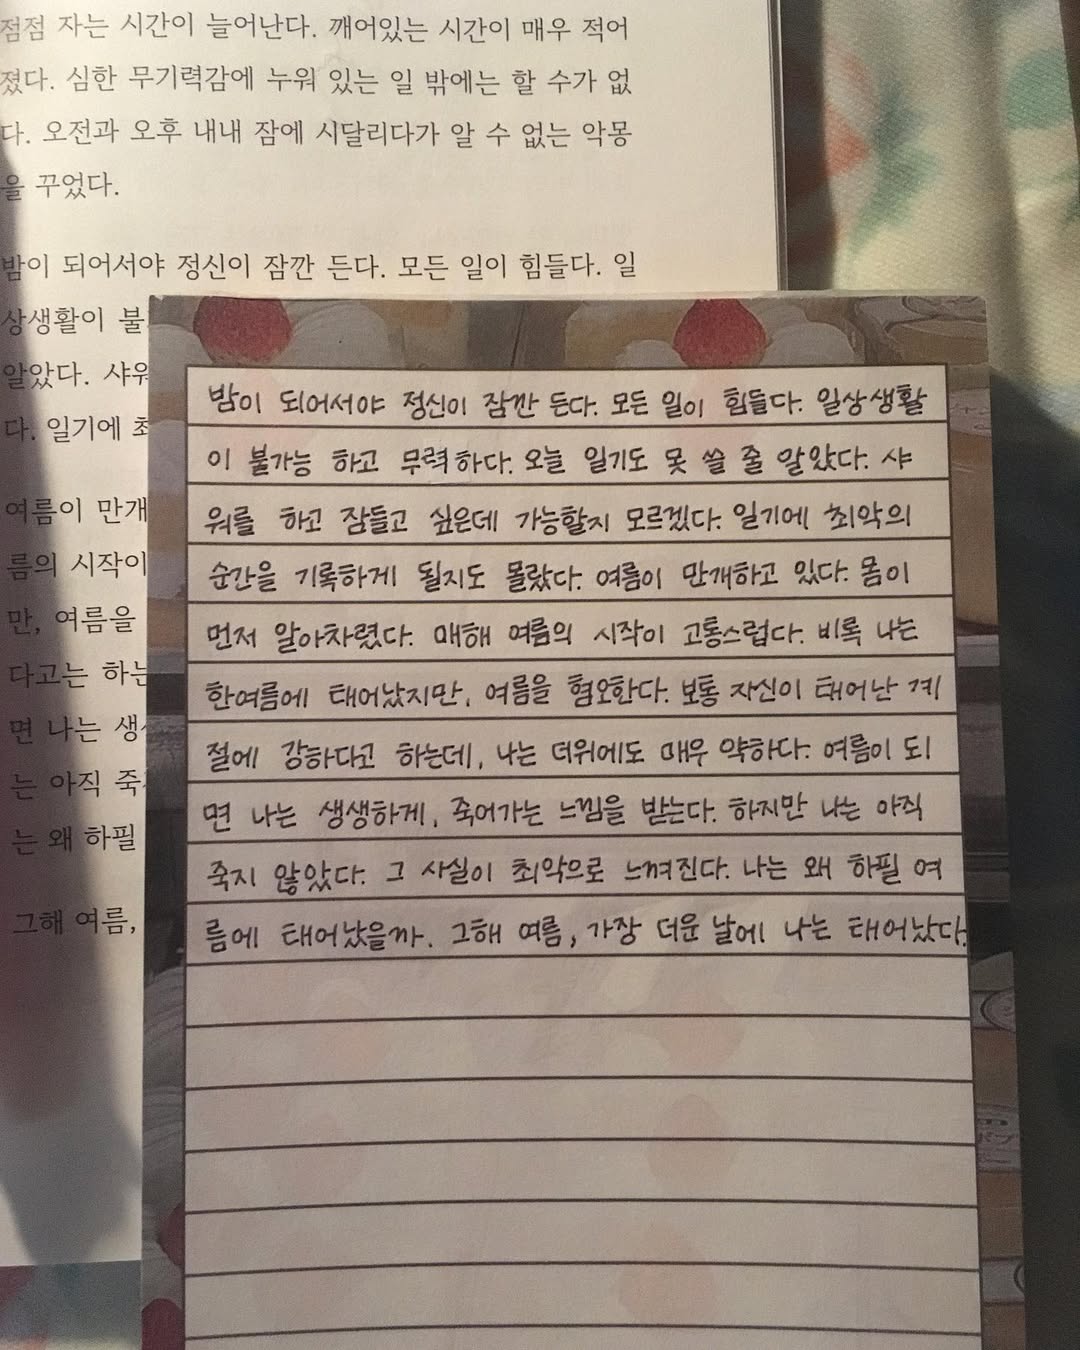 점점 자는 시간이 늘어난다. 깨어있는 시간이 매우 적어
졌다. 심한 무기력감에 누워 있는 일 밖에는 할 수가 없
다. 오전과 오후 내내 잠에 시달리다가 알 수 없는 악몽
을 꾸었다.
밤이 되어서야 정신이 잠깐 든다. 모든 일이 힘들다. 일
상생활이 불
알았다. 샤워
다. 일기에 최
여름이 만개
름의 시작이
만, 여름을
다고는 하는
면 나는 생
는 아직 죽
는 왜 하필
그해 여름,
밤이 되어서야 정신이 잠깐 든다. 모든 일이 힘들다. 일상생활
이 불가능 하고 무력하다. 오늘 일기도 못 쓸 줄 알았다. 샤
워를 하고 잠들고 싶은데 가능할지 모르겠다. 일기에 최악의
순간을 기록하게 될지도 몰랐다. 여름이 만개하고 있다. 몸이
먼저 알아차렸다. 매해 여름의 시작이 고통스럽다. 비록 나는
한여름에 태어났지만, 여름을 혐오한다. 보통 자신이 태어난 계
절에 강하다고 하는데, 나는 더위에도 매우 약하다. 여름이 되
면 나는 생생하게, 죽어가는 느낌을 받는다. 하지만 나는 아직
죽지 않았다. 그 사실이 최악으로 느껴진다. 나는 왜 하필 여
름에 태어났을까. 그해 여름, 가장 더운 날에 나는 태어났다.